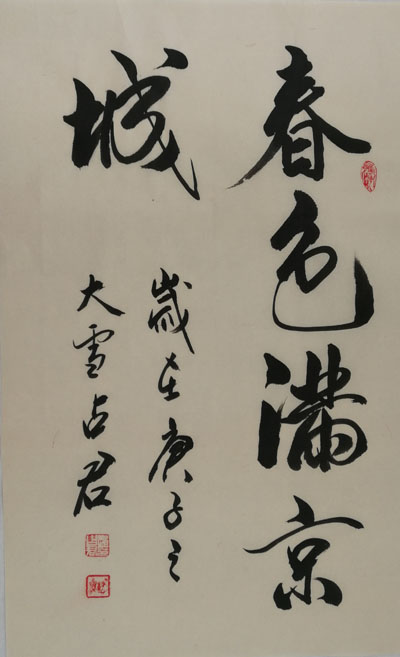 春色满京
城
岁在庚子之
大雪占君